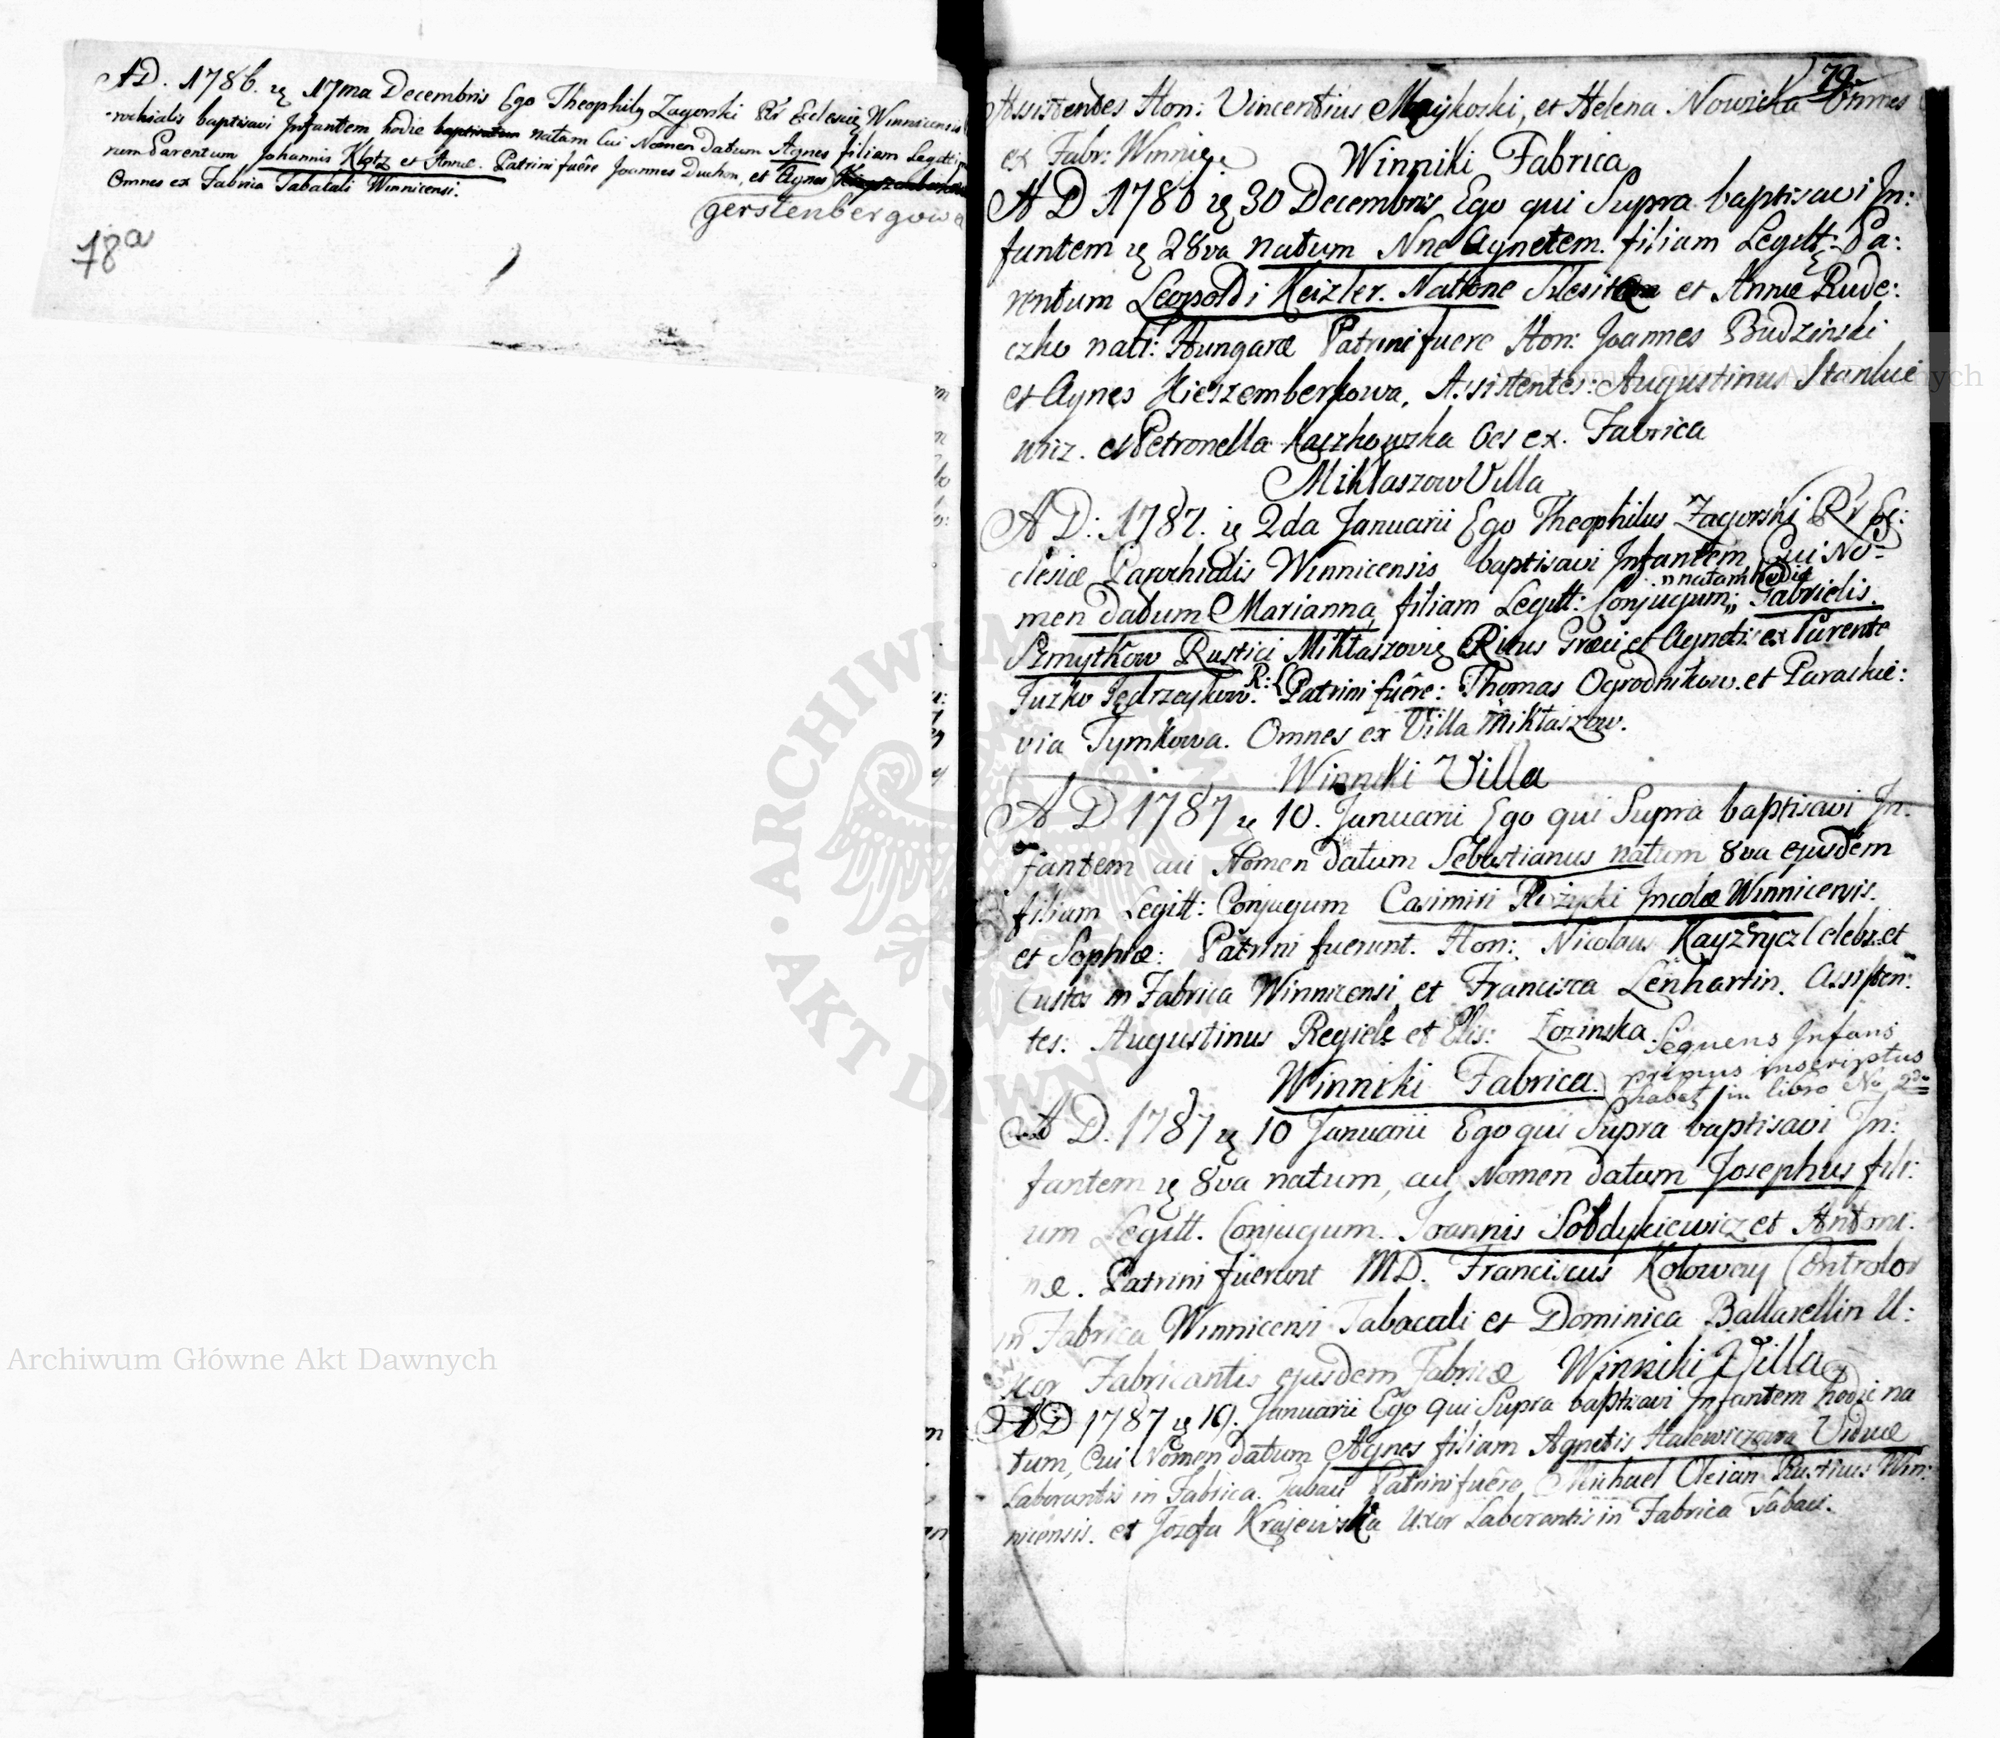 AD. 1786. ię 17ma Decembris Ego Theophily Zagorski Pr Eclesię Winnicensis
rochialis baptisavi Infantem hodie natam Cui Nomen datum Agnes filiam Legitti
rum Parentum Johannis Klotz et Annæ. Patrini fuêre Joannes Duchon, et Agnes
Omnes ex Fabrica Tabacali Winnicensi.
gerstenbergowa
78a
79
Assistentes Hon: Vincentius et Helena Nowicka Omnes
ex Fabr: Winnic
Winniki Fabrica
A D 1786 ię 30 Decembris Ego qui Supra baptisavi In:
fantem ię 28va natum Nne Agnetem. filiam Legitt: Pa:
rentum Leopoldi Keizler. Natione et Annæ Rude:
czko nati: Hungaræ Patrini fuere Hon: Joannes Budzinski
et Agnes Assistentes: Augustinus Stankie
wicz. et Petronella Kaczkowska Oes ex. Fabrica
Miklaszow Villa
A D: 1787. ię 2da Januarii Ego Theophilus Zagorski Pr Ec:
clesiæ Parochialis Winnicensis baptisavi Infantem Cui No-
natam hodie
men datum Marianna, filiam Legitt: Conjugum: Gabrielis.
Szmytkow Rustici Miklaszovię Ritus Græci et Agnetis ex Parente
Juzko Jędrzeykow. R: L Patrini fuêre: Thomas Ogrodnikow. et Paraskie:
via Tymkowa. Omnes ex Villa Miklaszow.
Winniki Villa
A D 1787 ię 10. Januarii Ego qui Supra baptisavi In:
fantem cui Nomen datum Sebastianus natum 8va ejusdem
filium Legitt: Conjugum Casimiri Rożycki Incolæ Winnicensis.
et Sophiæ: Patrini fuerunt. Hon: Nicolaus Celebs et
Custos in Fabrica Winnicensi et Francisca Lenhartin. Assisten:
tes: Augustinus et Elis: Łozinska.
Sequens Infans
primus inscriptus
habet in libro No 2do
Winniki Fabrica.
A D. 1787 ię 10 Januarii Ego qui Supra baptisavi In:
fantem ię 8va natum, cui Nomen datum Josephus fili:
um Legitt. Conjugum. Joannis Soldykiewicz et Antoni:
næ. Patrini fuerunt MD. Franciscus Koloway Controlor
in Fabrica Winnicensi Tabacali et Dominica Ballarellin U:
xor Fabricantis ejusdem Fabricæ Winniki Villa
AD 1787 ię 19. Januarii Ego qui Supra baptisavi Infantem hodie na
tum, Cui Nomen datum Agnes filiam Agnetis Halewiczowa Viduæ
Laborantis in Fabrica. Tabaci Patrini fuêre Michael Oleian Rusticus Win:
nicensis. et Jozefa Krajewska Uxor Laborantis in Fabrica Tabaci.
Archiwum Główne Akt Dawnych
Archiwum Główne Akt Dawnych
ARCHIWUM GŁÓWNE · AKT DAWNYCH ·